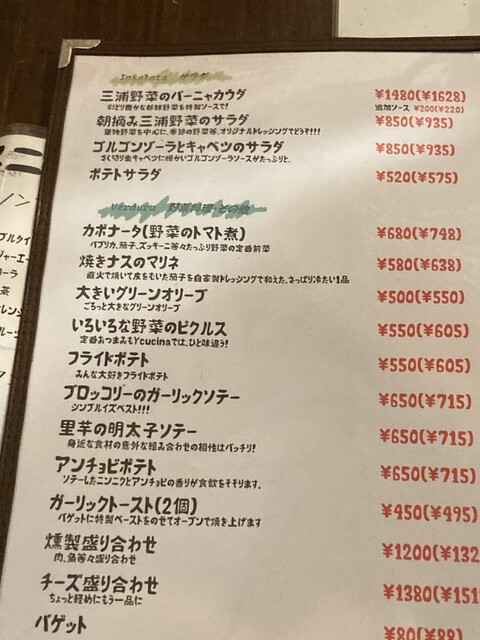 Insalata サラダ
三浦野菜のバーニャカウダ ¥1480(¥1628)
彩どり豊かな新鮮野菜を特製ソースで! 追加ソース ¥200(¥220)
朝摘み三浦野菜のサラダ ¥850(¥935)
葉物野菜を中心に、季節の野菜等、オリジナルドレッシングでどうぞ!!!
ゴルゴンゾーラとキャベツのサラダ ¥850(¥935)
ざく切り生キャベツに温かいゴルゴンゾーラソースがたっぷりと、
ポテトサラダ ¥520(¥575)
Verdura 野菜料理・その他
カポナータ(野菜のトマト煮) ¥680(¥748)
パプリカ、茄子、ズッキーニ等々たっぷり野菜の定番前菜
焼きナスのマリネ ¥580(¥638)
直火で焼いて皮をもいた茄子を自家製ドレッシングで和えた、さっぱり冷たい1品
大きいグリーンオリーブ ¥500(¥550)
ごろっと大きなグリーンオリーブ
いろいろな野菜のピクルス ¥550(¥605)
定番おつまみもYcucinaでは、ひと味違う!
フライドポテト ¥550(¥605)
みんな大好きフライドポテト
ブロッコリーのガーリックソテー ¥650(¥715)
シンプルイズベスト!!!
里芋の明太子ソテー ¥650(¥715)
身近な食材の意外な組み合わせの相性はバッチリ!
アンチョビポテト ¥650(¥715)
ソテーしたニンニクとアンチョビの香りが食欲をそそります。
ガーリックトースト(2個) ¥450(¥495)
バゲットに特製ペーストをのせてオーブンで焼き上げます
燻製盛り合わせ ¥1200(¥132
肉、魚等々盛り合わせ
チーズ盛り合わせ ¥1380(¥151
ちょっと軽めにもう一品に
バゲット ¥80(¥88)